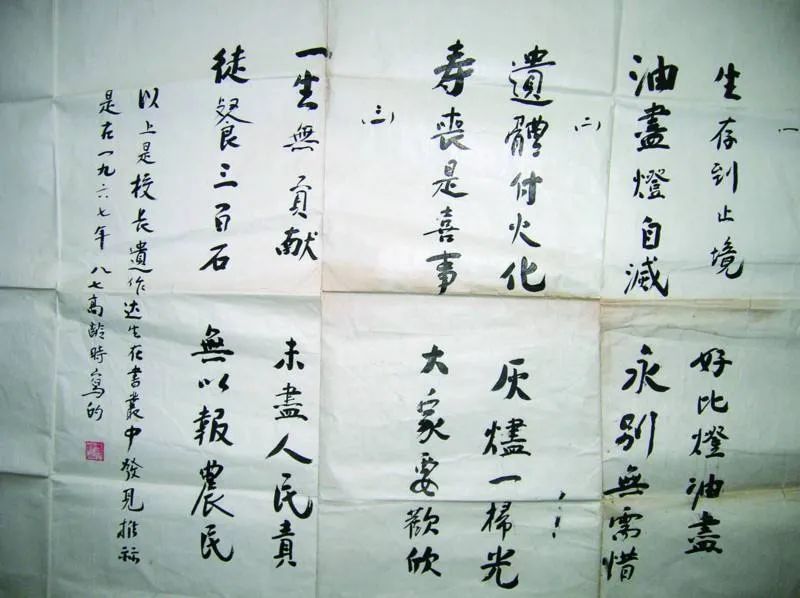 一
生存到止境 好比燈油盡
油盡燈自滅 永别無需惜
(二)
遺體付火化 灰燼一掃光
寿喪是喜事 大家要歡欣
(三)
一生無貢献 未盡人民責
徒餐三百石 無以報農民
以上是校长遺作达生在書叢中發見推
是在一九六七年 八七高齡時寫的